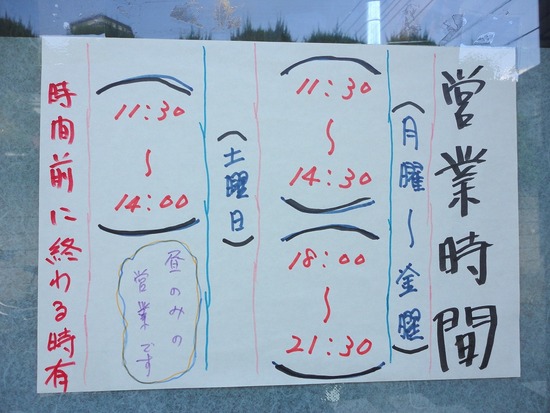 営業時間
(月曜〜金曜)
11:30
〜
14:30
18:00
〜
21:30
(土曜日)
11:30
〜
14:00
昼のみの
営業です
時間前に終わる時有